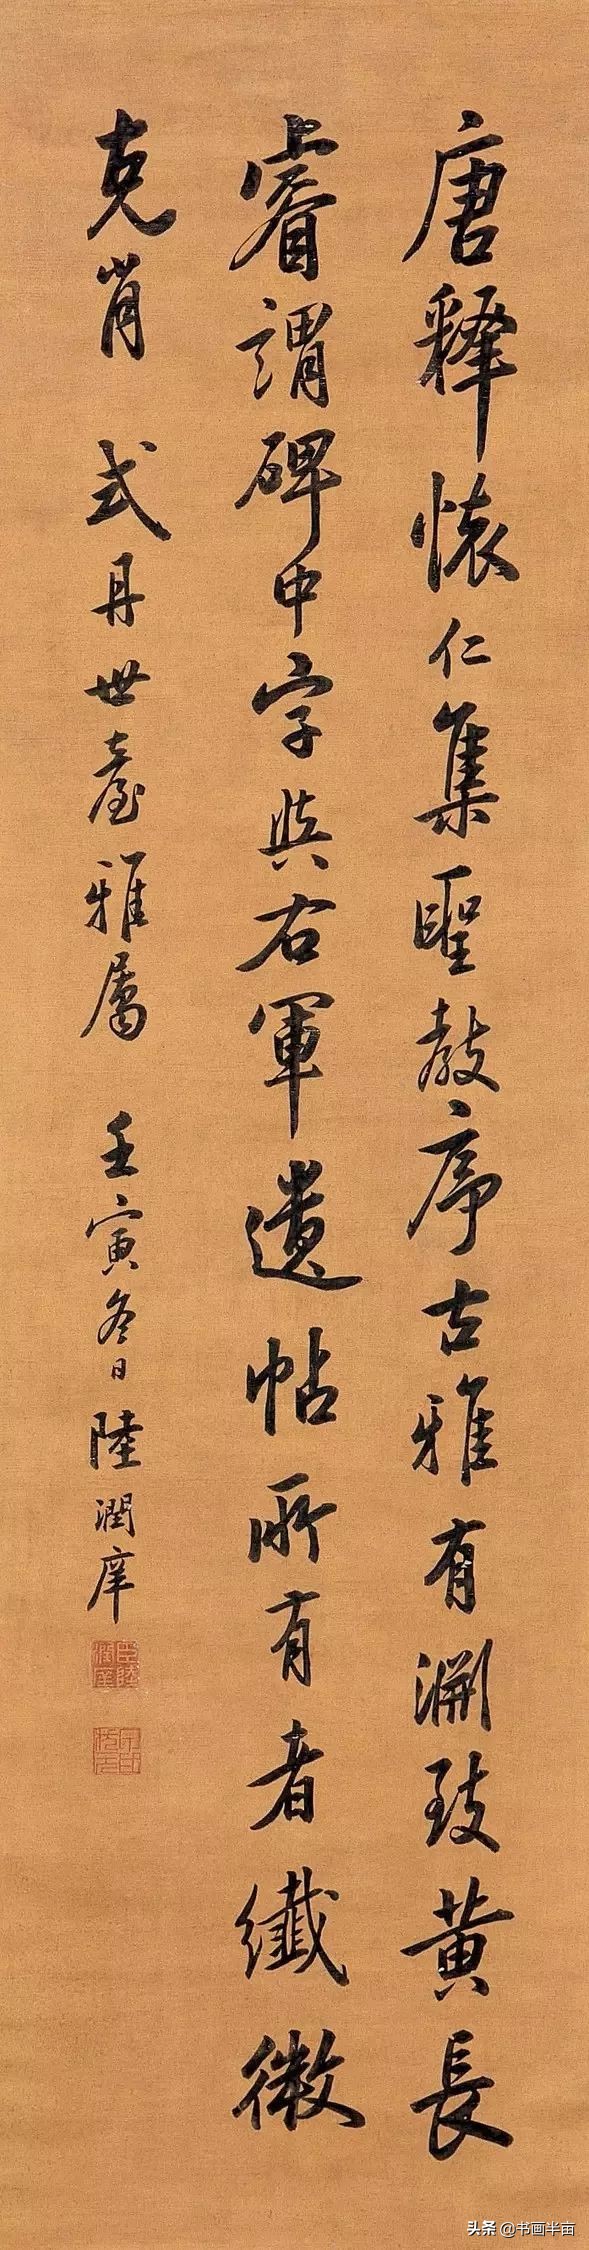 唐釋懷仁集聖教序古雅有淵致黃長
睿謂碑中字與右軍遺帖所有者纖微
克肖 式丹世臺雅屬 壬寅冬日陸潤庠
头条 @书画半亩